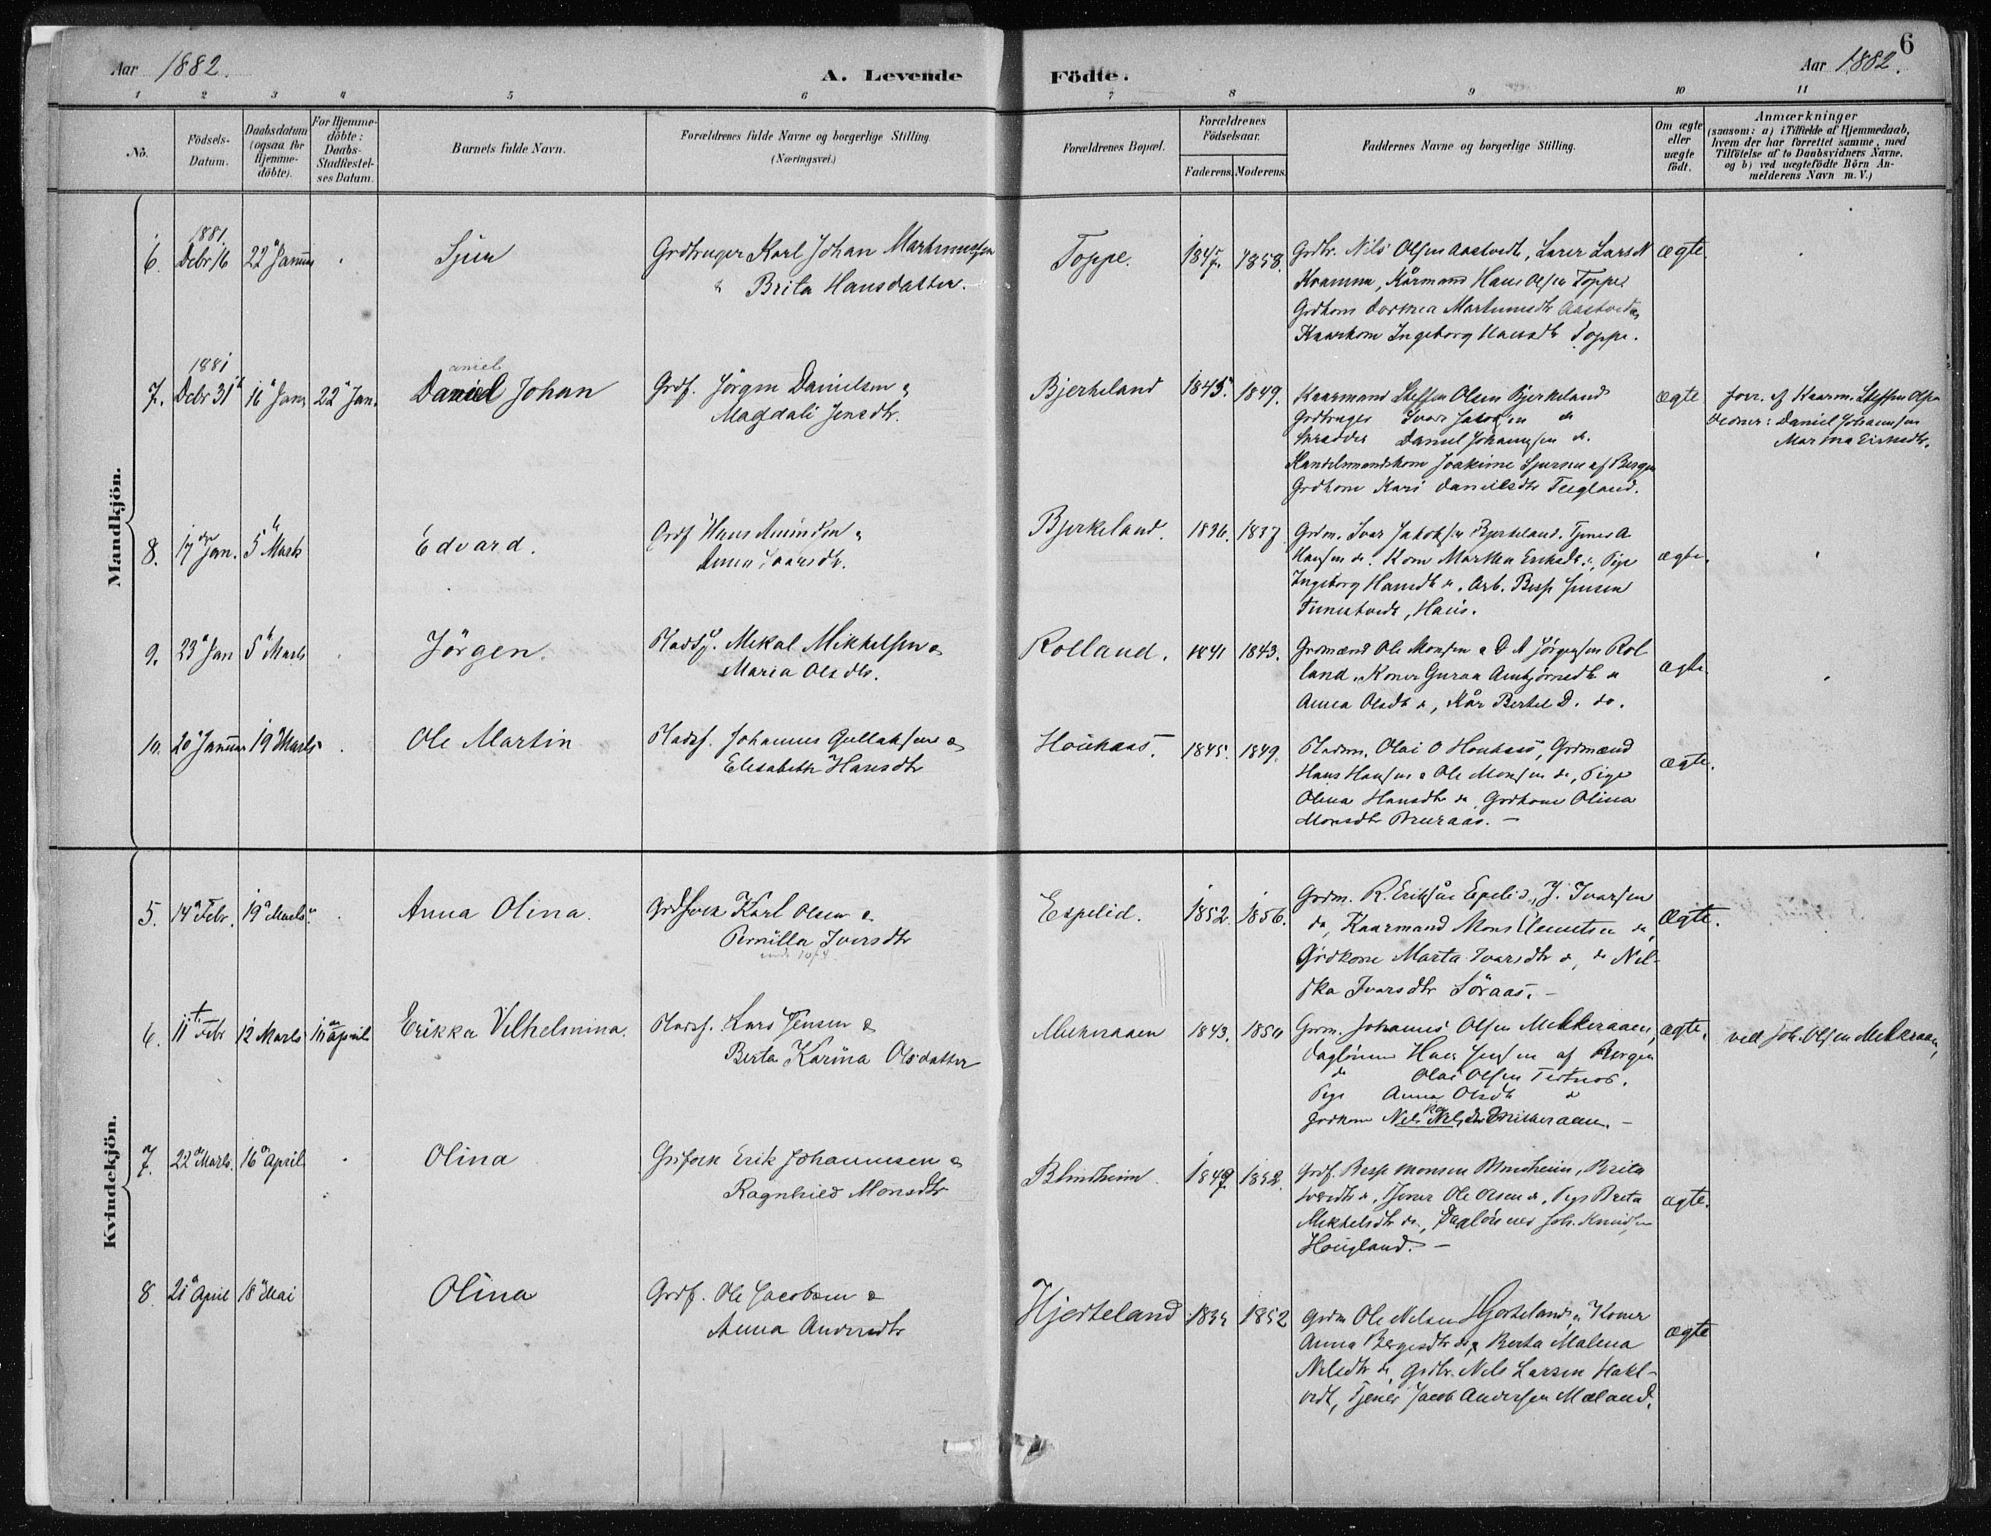 6
Aar 1882.
A. Levende Födte.
Aar 1882.
1 2 3 4 5 6 7 8 9 10 11
No.
Födsels-
Datum.
Daabsdatum
(ogsaa for
Hjemme-
döbte).
For Hjemme-
döbte:
Daabs-
Stadfæstel-
ses Datum.
Barnets fulde Navn.
Forældrenes fulde Navne og borgerlige Stilling.
(Næringsvei.)
Forældrenes Bopæl.
Forældrenes
Födselsaar.
Faderens. Moderens.
Faddernes Navne og borgerlige Stilling.
Om ægte
eller
uægte
födt.
Anmærkninger
(saasom: a) i Tilfælde af Hjemmedaab,
hvem der har forrettet samme, med
Tilföielse af to Daabsvidners Navne,
og b) ved uægtefödte Börn An-
melderens Navn m. V.)
Mandkjön.
1881
6. Debr 16 22 Januar Sjur
Grdbruger Karl Johan
& Brita Hansdatter.
Toppe. 1847. 1858.
Grdbr. Nils Olsen Aastvedt, Lærer Lars N
Kvamme, Kårmand Hans Olsen Toppe
Grdkone Dorthea
Ingeborg Toppe.
ægte
1881
7. Debr 31 16 Janr 22 Jan. Daniel Johan
aniel
Grdf. Jörgen Danielsen &
Magdali Jensdtr.
Bjerkeland 1845. 1849.
Kaarmand Steffen Olsen Bjerkeland
Grdbruger Ivar Jakobsen do
Daniel Johannesen do.
Joakime af Bergen
Grdkone Kari Danielsdtr Teigland.
ægte
forr. af Kaarm. Steffen Olsen
Daniel Johannesen
8. 17 Jan. 5 Marts Edvard.
Grdf Hans
Anna Ivarsdtr.
Bjerkeland. 1836. 1837
Grdm. Ivar Jakobsen Bjerkeland. Tjener A
Hansen do. Kone Martha Eriksdtr do, Pige
Ingeborg Hansdtr do. Arb. Besse Jensen
Haus.
ægte.
9. 23 Jan 5 Marts Jörgen.
Pladsf. Mikal Mikkelsen &
Maria Olsdtr.
Rolland. 1841 1843.
Grdmænd Ole Monsen & D A Jörgensen Rol
land, Koner Guroa Anbjörnsdtr &
Anna Olsdtr do, Kår Bertel D. do.
ægte.
10. 20 Januar 19 Marts. Ole Martin
Pladsf. Johannes Gullaksen &
Elisabeth Hansdtr
Houkaas. 1845. 1849.
Pladsm. Olai O Houkaas, Grdmænd
Hans Hansen & Ole Monsen do, Pige
Olina Hansdtr do. Grdkone Olina
Monsdtr Bruraas. —
ægte.
Kvindekjön.
5. 14 Febr. 19 Marts. Anna Olina.
Grdfolk Karl Olsen &
Pernilla Iversdtr
Espelid. 1852. 1856.
Grdm. R. Eriksen Espelid, J. Ivarsen
do, Kaarmand Mons Clemetsen do,
Grdkone Marta Ivarsdtr do, do Nil-
ska Ivarsdtr Söraas. —
ægte.
6. 11 Febr 12 Marts 10 April Erikka Vilhelmina.
Pladsf. Lars Jensen &
Berta Karina Olsdatter
1843. 1850
Grdm. Johannes Olsen Mekkeraaen,
Daglönner Hans Jensen af Bergen
do Olai Olsen Tertnes.
Pige Anna Olsdtr do
Grdkone
ægte.
ved Joh. Olsen Mekkeraaen,
7. 22 Marts. 16 April Olina
Grdfolk Erik Johannesen &
Ragnhild Monsdtr
Blindheim. 1849. 1852.
Grdf. Besse Monsen Blindheim, Brita
do, Tjener Ole Olsen do, Pige Brita
Mikkelsdtr do, Daglönner Joh. Knudsen
Hougland. —
ægte.
8. 21 April 18 Mai Olina
Grdf. Ole Jacobsen &
Anna Andersdtr
Hjorteland 1852
Grdm Ole Nelsen Hjorteland, Koner
Anna do, & Berta Malena
Nilsdtr do, Grdbr. Nils Larsen Hakl-
vedt, Tjener Jacob Andersen Mæland.
ægte